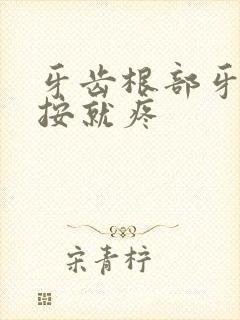 牙齿根部牙
按就疼
宋青柠